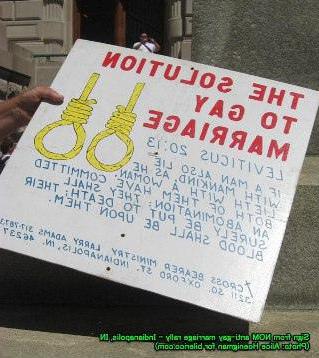 THE SOLUTION
TO GAY
MARRIAGE
LEVITICUS 20:13
IF A MAN ALSO LIE
WITH MANKIND, AS HE
LIETH WITH A WOMAN,
BOTH OF THEM HAVE COMMITTED
AN ABOMINATION: THEY SHALL
SURELY BE PUT TO DEATH; THEIR
BLOOD SHALL BE UPON THEM.
CROSS BEARER MINISTRY LARRY ADAMS 317-7873
OXFORD ST. INDIANAPOLIS, IN. 46237
Sign from NOM anti-gay marriage rally - Indianapolis, IN
(Photo: Alice Hoenigman for bilerico.com)